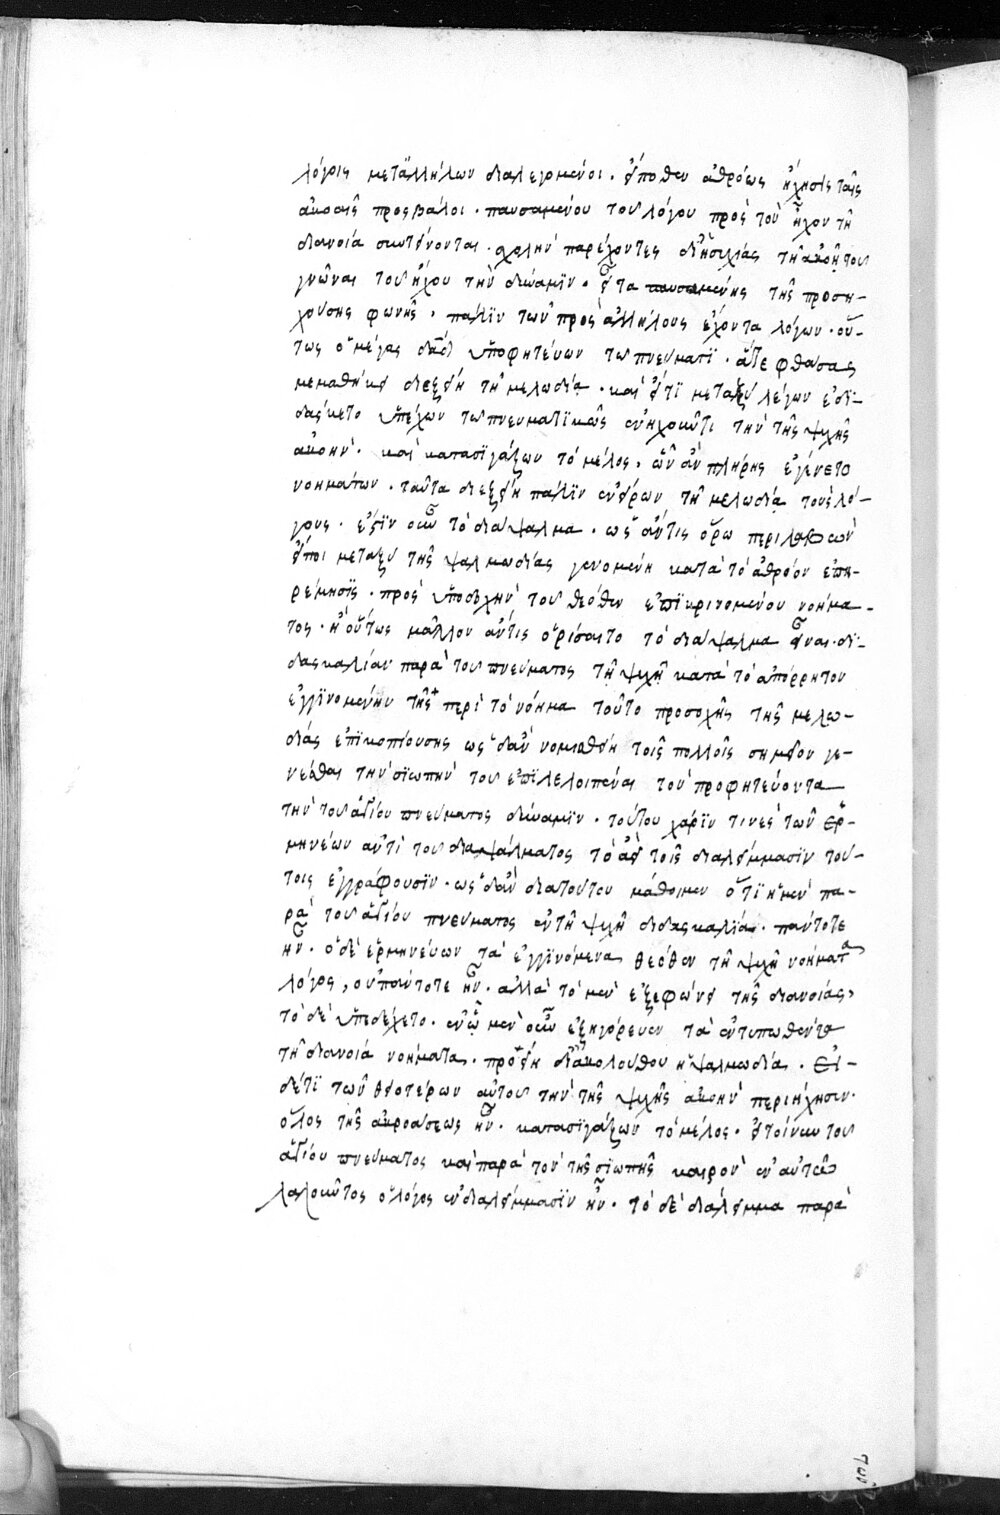 λόγοις μετ' ἀλλήλων διαλεγομένοι· εἴ ποθεν ἀθρόως ἤχησίς ταῖς
ἀκοαῖς προσβάλοι· παυσαμένου τοῦ λόγου πρὸς τὸν ἦχον τῇ
διανοία συντείνονται· σχολὴν παρέχοντες δι' ἡσυχίας τῇ ἀκοῇ τοῦ
γνῶναι τοῦ ἤχου τὴν δύναμιν· εἶτα παυσαμένης τῆς προση-
χούσης φωνῆς, πάλιν τῶν πρὸς ἀλλήλους ἔχονται λόγων· οὕ-
τως ὁ μέγας δαδ ὑποφητεύων τῶ πνεύματι· ἅτε φθάσας
μεμαθήκει διεξήει τῇ μελωδία· καὶ εἴ τι μεταξὺ λέγων ἐδι-
δάσκετο ὑπέχων τῶ πνευματικῶς ἐνηχοῦντι τὴν τῆς ψυχῆς
ἀκοὴν· καὶ κατασιγάζων τὸ μέλος, ὧν ἂν πλήρης ἐγένετο
νοημάτων· ταῦτα διεξήει πάλιν ἐνείρων τῇ μελωδία τοὺς λό-
γους· ἔστιν οὖν τὸ διάψαλμα· ὡς ἄν τις ὅρω περιλαβὼν
εἴποι μεταξὺ τῆς ψαλμωδίας γενομένη κατὰ τὸ ἀθρόον ἐπη-
ρέμησις· πρὸς ὑποδοχὴν τοῦ θεόθεν ἐπικρινομένου νοήμα-
τος· ἢ οὕτως μᾶλλον ἄν τις ὁρίσαιτο τὸ διάψαλμα εἶναι· δι-
δασκαλίαν παρὰ τοῦ πνεύματος τῇ ψυχῇ κατὰ τὸ ἀπόρρητον
ἐγγινομένην τῆς περὶ τὸ νόημα τοῦτο προσοχῆς τῆς μελω-
δίας ἐπικοπτούσης ὡς δ' ἂν νομισθείη τοῖς πολλοῖς σημεῖον γε-
νέσθαι τὴν σιωπὴν τοῦ ἐπιλελοιπέναι τὸν προφητεύοντα
τὴν τοῦ ἁγίου πνεύματος δύναμιν· τούτου χάριν τινὲς τῶν ἑρ-
μηνέων ἀντὶ τοῦ διαψάλματος τὸ ἀεὶ τοῖς διαλείμμασιν τού-
τοις ἐγγράφουσιν· ὡς δ' ἂν διατούτου μάθοιμεν ὅτι ἡ μὲν πα-
ρὰ τοῦ ἁγίου πνεύματος ἐν τῇ ψυχῇ διδασκαλία· πάντοτε
ἦν· ὁ δὲ ἑρμηνεύων τὰ ἐγγινόμενα θεόθεν τῇ ψυχῇ νοήματα
λόγος, οὐ πάντοτε ἦν· ἀλλὰ τὸ μὲν ἐξεφώνει τῆς διανοίας,
τὸ δὲ ὑπεδέχετο· ἐν ᾧ μὲν οὖν ἐξηγόρευεν τὰ ἐντυπωθέντα
τῇ διανοία νοήματα· προήει δι' ἀκολούθου ἡ ψαλμωδία· εἰ-
δέτι τῶν θειοτέρων αὐτοῦ τὴν τῆς ψυχῆς ἀκοὴν περιήχησεν·
ὅλος τῆς ἀκροάσεως ἦν· κατασιγάζων τὸ μέλος· εἰ τοίνυν τοῦ
ἁγίου πνεύματος καὶ παρὰ τὸν τῆς σιωπῆς καιρὸν ἐν αὐτῶ
λαλοῦντος ὁ λόγος ἐν διαλείμμασιν ἦν· τὸ δὲ διάλειμμα παρὰ